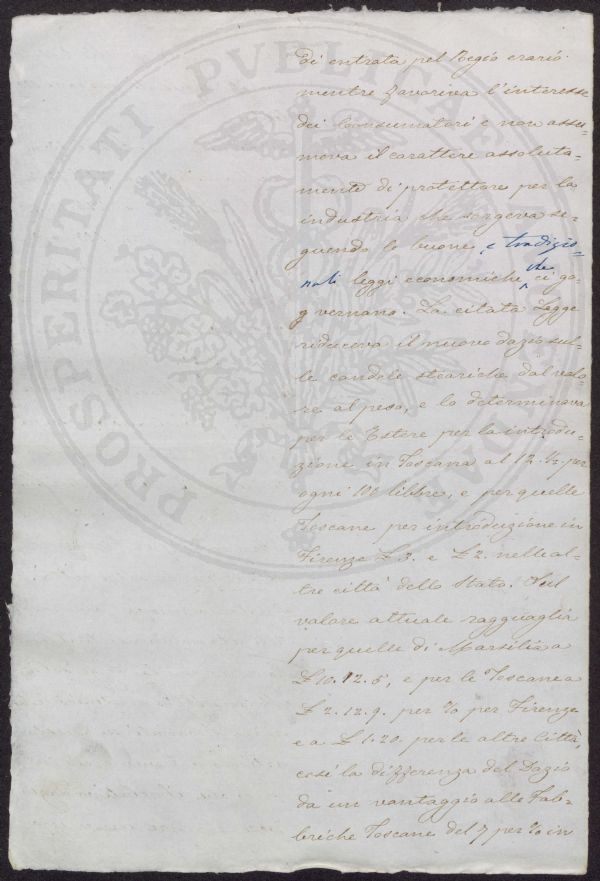 PROSPERITATI PVBLICAE
di entrata pel Regio erario
mentre favoriva l'interesse
dei Consumatori e non assu-
meva il carattere assoluta-
mente di protettore per la
industria che sorgeva se-
guendo le buone, e tradizio-
nali leggi economiche che ci go-
vernano. La citata Legge
riduceva il nuovo dazio sul-
le candele steariche dal valo-
re, al peso, e lo determinava
per le Estere per la introdu-
zione in Toscana al 12.½ per
ogni 100 libbre, e per quelle
Toscane per introduzione in
Firenze £ 3. e £ 2. nelle al-
tre città dello Stato. Sul
valore attuale ragguaglia
per quelle di Marsilia a
£ 10.12.5, e per le Toscane a
£ 2.12.9. per % per Firenze
e a £ 1.20. per le altre Città,
così la differenza del Dazio
dà un vantaggio alle Fab-
briche Toscane del 7 per % in